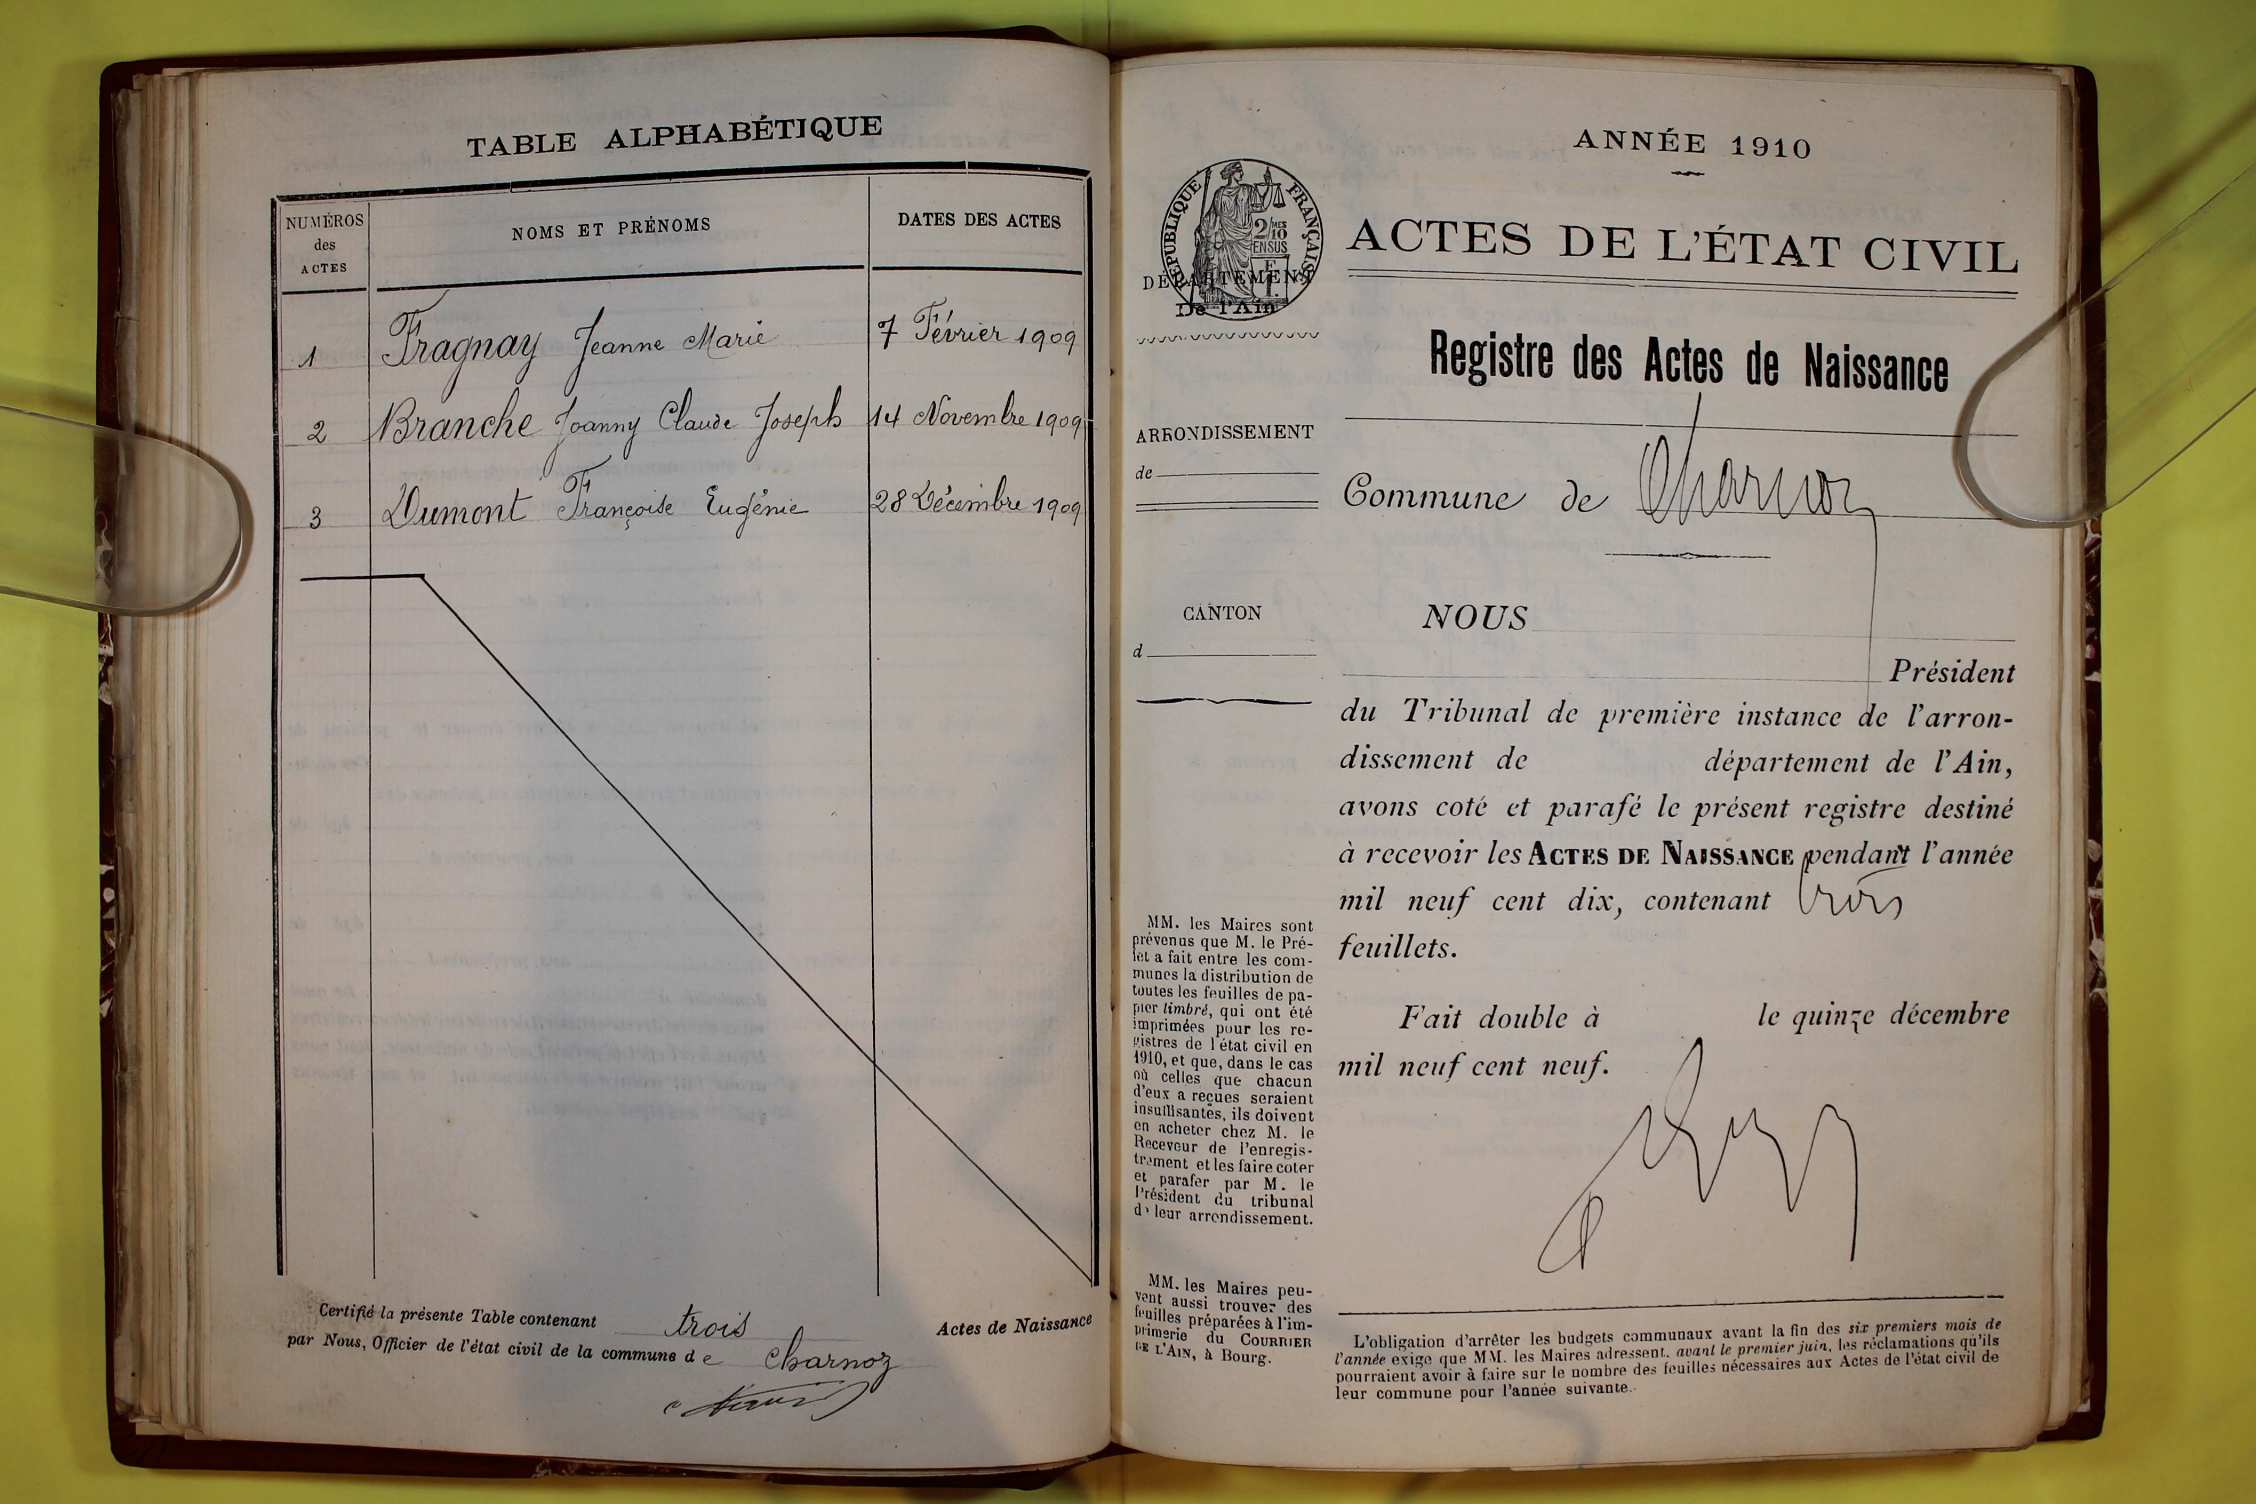 TABLE ALPHABÉTIQUE
NUMÉROS
des
ACTES
NOMS ET PRÉNOMS
DATES DES ACTES
1 Fragnay Jeanne Marie 7 Février 1909
2 Branche Joanny Claude Joseph 14 Novembre 1909
3 Dumont Françoise Eugénie 28 Décembre 1909
Certifié la présente Table contenant trois Actes de Naissance
par Nous, Officier de l'état civil de la commune de Charnoz
ANNÉE 1910
RÉPUBLIQUE FRANÇAISE
2/10MES
EN SUS
DÉPARTEMENT
De l'Ain
ACTES DE L'ÉTAT CIVIL
Registre des Actes de Naissance
ARRONDISSEMENT
de
Commune de Charnoz
CANTON
d
NOUS
Président
du Tribunal de première instance de l'arron-
dissement de département de l'Ain,
avons coté et parafé le présent registre destiné
à recevoir les ACTES DE NAISSANCE pendant l'année
mil neuf cent dix, contenant trois
feuillets.
Fait double à le quinze décembre
mil neuf cent neuf.
MM. les Maires sont
prévenus que M. le Pré-
fet a fait entre les com-
munes la distribution de
toutes les feuilles de pa-
pier timbré, qui ont été
imprimées pour les re-
gistres de l'état civil en
1910, et que, dans le cas
où celles que chacun
d'eux a reçues seraient
insuffisantes, ils doivent
en acheter chez M. le
Receveur de l'enregis-
trement et les faire coter
et parafer par M. le
Président du tribunal
de leur arrondissement.
MM. les Maires peu-
vent aussi trouver des
feuilles préparées à l'im-
primerie du COURRIER
DE L'AIN, à Bourg.
L'obligation d'arrêter les budgets communaux avant la fin des six premiers mois de
l'année exige que MM. les Maires adressent, avant le premier juin, les réclamations qu'ils
pourraient avoir à faire sur le nombre des feuilles nécessaires aux Actes de l'état civil de
leur commune pour l'année suivante.